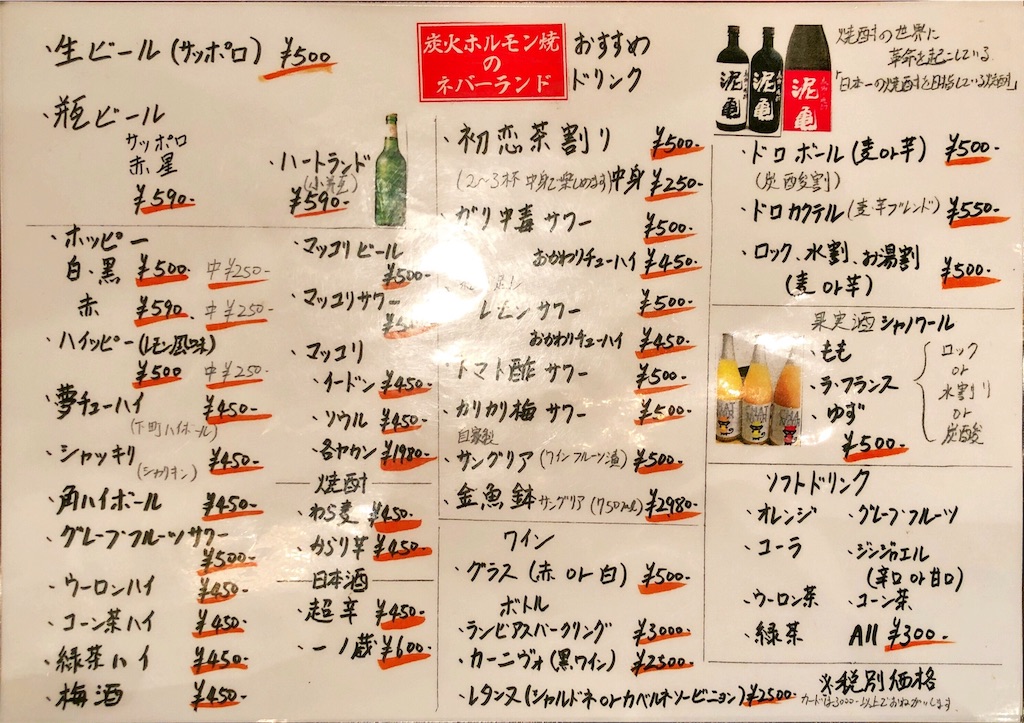 ・生ビール(サッポロ) ¥500
・瓶ビール
サッポロ
赤星
¥590-
・ハートランド
(小瓶)
¥590-
・ホッピー
白・黒 ¥500- 中¥250-
赤 ¥590- 中¥250-
・ハイッピー(レモン風味)
¥500 中¥250-
・夢チューハイ ¥450-
(下町ハイボール)
・シャッキリ ¥450-
(シャリキン)
・角ハイボール ¥450-
・グレープフルーツサワー
¥500-
・ウーロンハイ ¥450-
・コーン茶ハイ ¥450-
・緑茶ハイ ¥450-
・梅酒 ¥450-
・マッコリビール
¥500-
・マッコリサワー
・マッコリ
・イードン ¥450-
・ソウル ¥450-
・各ヤカン ¥1980-
焼酎
・わら麦 ¥450-
・からり芋 ¥450-
日本酒
・超辛 ¥450-
・一ノ蔵 ¥600-
炭火ホルモン焼
の
ネバーランド
おすすめ
ドリンク
・初恋茶割り ¥500-
(2〜3杯中身で楽しめます)中身 ¥250-
・ガリ中毒サワー ¥500-
おかわりチューハイ ¥450-
レモンサワー ¥500-
おかわりチューハイ ¥450-
・トマト酢サワー ¥500-
・カリカリ梅サワー ¥500-
自家製
・サングリア(ワインフルーツ漬) ¥500-
・金魚鉢サングリア(750ml) ¥2980-
ワイン
・グラス(赤or白) ¥500-
ボトル
・ランビアスパークリング ¥3000-
・カーニヴォ(黒ワイン) ¥2500-
・レタンヌ(シャルドネorカベルネソービニヨン) ¥2500-
泥亀
泥亀
泥亀
焼酎の世界に
革命を起こしている
「日本一の焼酎を目指している焼酎」
・ドロボール(麦or芋) ¥500-
(炭酸割)
・ドロカクテル(麦・芋ブレンド) ¥550-
・ロック、水割、お湯割 ¥500-
(麦or芋)
果実酒シャノワール
・もも
・ラ・フランス
・ゆず
¥500-
ロック
or
水割り
or
炭酸
ソフトドリンク
・オレンジ ・グレープフルーツ
・コーラ ・ジンジャエール
(辛口or甘口)
・ウーロン茶 ・コーン茶
・緑茶 All ¥300-
※税別価格
カードは3000-以上でおねがいします